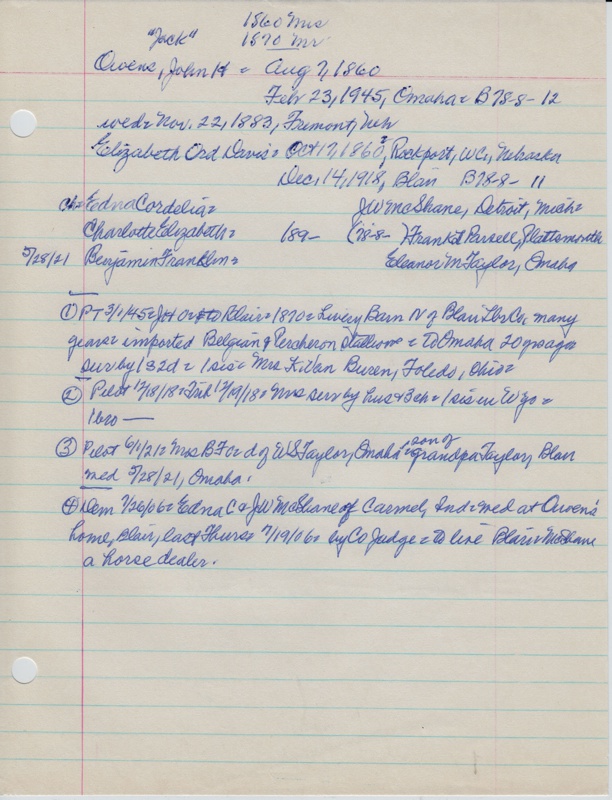 1860 Mrs
"Jack" 1870 Mr
Owens, John H = Aug 7, 1860
Feb 23, 1945, Omaha = B78-8-12
wed = Nov. 22, 1883, Fremont, Neb
Elizabeth Ord Davis = Oct 17, 1860?, Rockport, WC, Nebraska
Dec. 14, 1918, Blair B78-8-11
Ch = Edna Cordelia = JW McShane, Detroit, Mich =
Charlotte Elizabeth = 189- (78-8- ) Frank E Parsell, Plattsmouth
5/28/21 Benjamin Franklin = Eleanor M Taylor, Omaha
① PT 3/1/45 = JH O to Blair = 1870 = Livery Barn N of Blair Lbr Co, many
years = imported Belgian & Percheron Stallions = to Omaha 20 yrs ago =
surv by 1 s 2 d = 1 sis = Mrs K Van Buren, Toledo, Ohio =
② Pilot 12/18/18 = Trib 12/19/18 = Mrs surv by hus & 3 ch = 1 sis in Wyo =
1 bro —
③ Pilot 6/1/21 = Mrs B F O = d of WS Taylor, Omaha = son of grandpa Taylor, Blair
wed 5/28/21, Omaha.
④ Dem 7/26/06 = Edna C & JW McShane of Carmel, Ind = wed at Owens'
home, Blair, last Thurs = 7/19/06 = by Co Judge = to live Blair = McShane
a horse dealer.